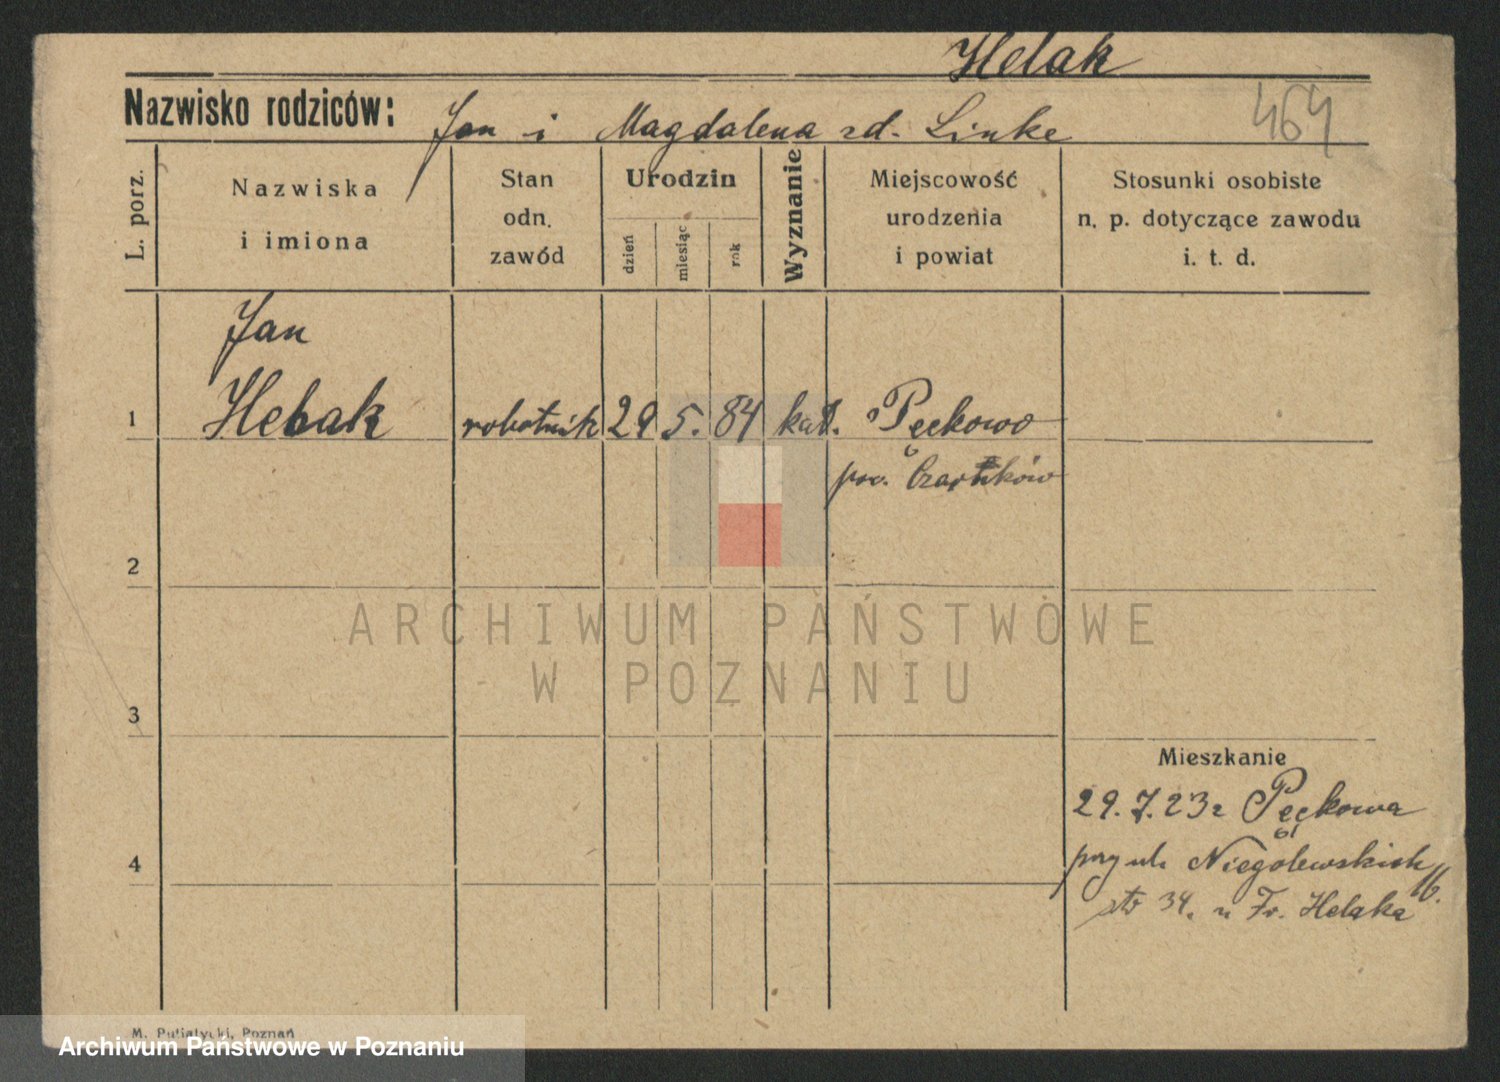 Helak
Nazwisko rodziców: Jan i Magdalena zd. Linke
464
L. porz.
Nazwiska
i imiona
Stan
odn.
zawód
Urodzin
dzień
miesiąc
rok
Wyznanie
Miejscowość
urodzenia
i powiat
Stosunki osobiste
n. p. dotyczące zawodu
i. t. d.
Jan
1 Helak robotnik 29 5. 84 kat. Pęckowo
pow. Czarnków
2
ARCHIWUM PAŃSTWOWE
W POZNANIU
3
Mieszkanie
29.7.23 z Pęckowa
4
przy ul. Niegolewskich 16.
34. u Fr. Helaka
M. Putiatycki, Poznań
Archiwum Państwowe w Poznaniu